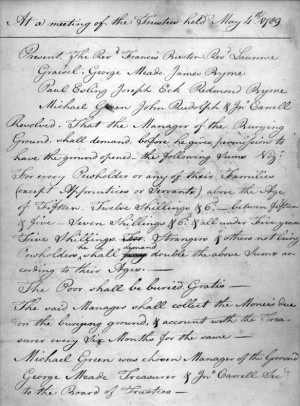 At a meeting of the Trustees held May 4th 1789
Present The Revd Francis Beeston Revd Laurence
Graessl. George Meade James Byrne
Paul Esling Joseph Eck Redmond Byrne
Michael Green John Rudolph & Jno Carrell
Resolved. That the Manager of the Burying
Ground, shall demand before he gives permission to
have the ground opened the following Sums Viz.
For every Pewholder or any of their Families
(except Apprentices or Servants) above the Age
of Fifteen. Twelve Shillings & 6d. between fifteen
& five - Seven Shillings & 6d & all under Five years
Five Shillings Strangers & others not being
the demand
Pewholders, shall double the above Sums ac-
cording to their Ages. —
The Poor shall be buried Gratis —
The said Manager shall collect the Monies due
on the burying ground, & account with the Trea-
surer every Six Months for the same —
Michael Green was chosen Manager of the Ground
George Meade Treasurer & Jno Carrell Secy
to the Board of Trustees —